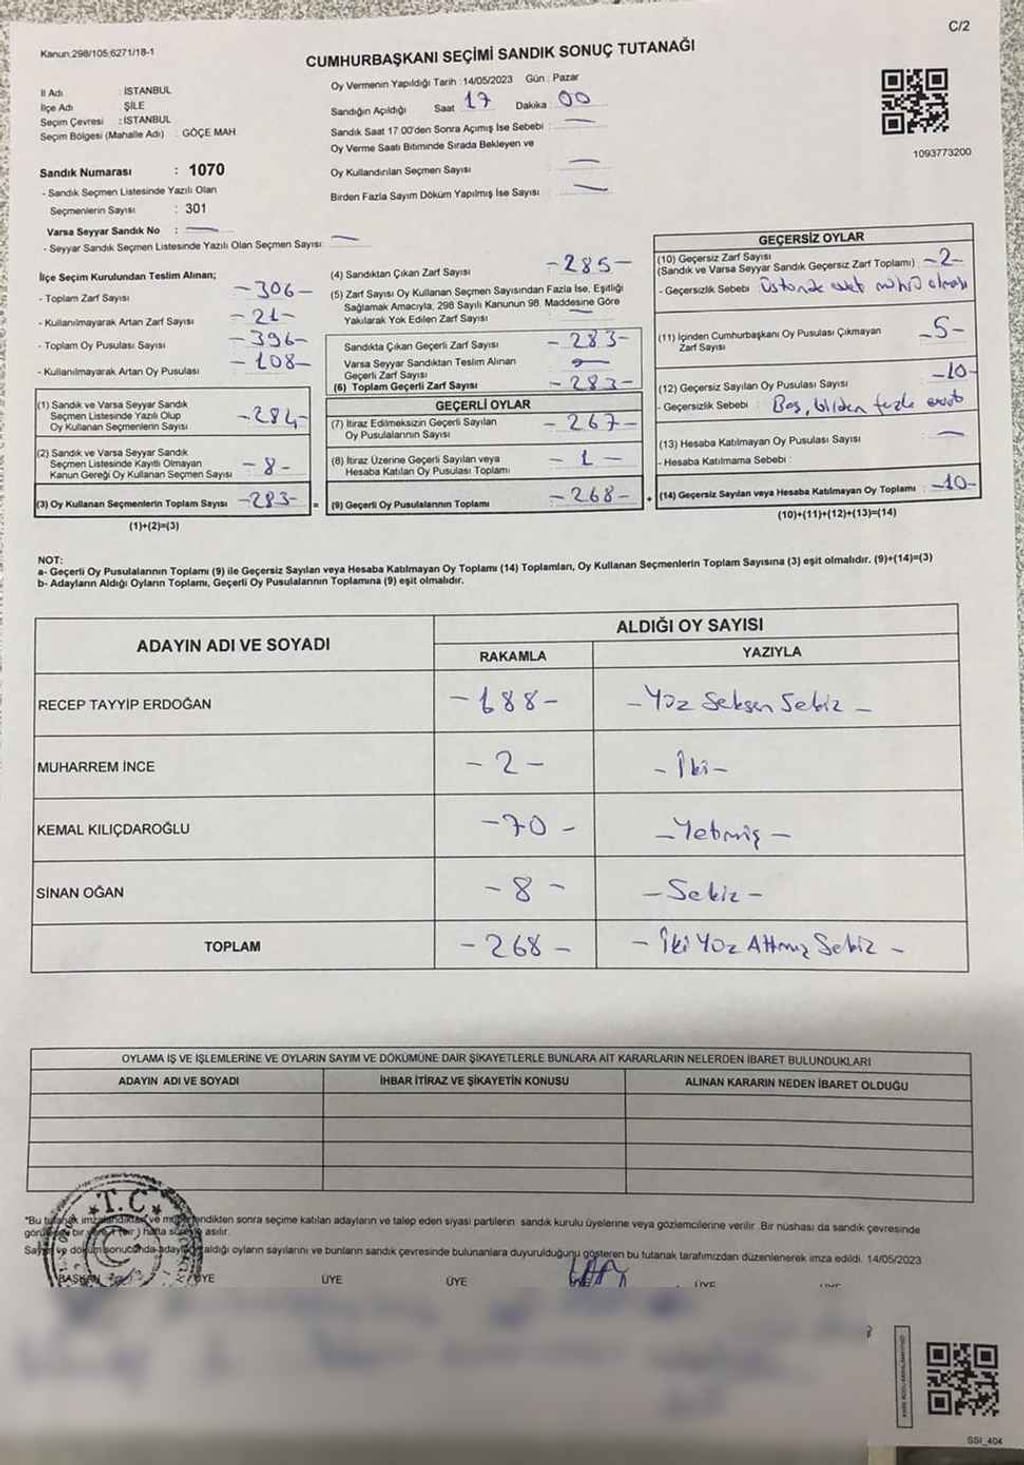 C/2
Kanun:298/105;6271/18-1
CUMHURBAŞKANI SEÇİMİ SANDIK SONUÇ TUTANAĞI
İl Adı : İSTANBUL
İlçe Adı : ŞİLE
Seçim Çevresi : İSTANBUL
Seçim Bölgesi (Mahalle Adı) : GÖÇE MAH
Oy Vermenin Yapıldığı Tarih : 14/05/2023 Gün : Pazar
Sandığın Açıldığı Saat 17 Dakika 00
Sandık Saat 17:00'den Sonra Açımış İse Sebebi : —
Oy Verme Saati Bitiminde Sırada Bekleyen ve
Oy Kullandırılan Seçmen Sayısı —
Birden Fazla Sayım Döküm Yapılmış İse Sayısı —
1093773200
Sandık Numarası : 1070
- Sandık Seçmen Listesinde Yazılı Olan
Seçmenlerin Sayısı : 301
Varsa Seyyar Sandık No : —
- Seyyar Sandık Seçmen Listesinde Yazılı Olan Seçmen Sayısı —
İlçe Seçim Kurulundan Teslim Alınan;
- Toplam Zarf Sayısı -306-
- Kullanılmayarak Artan Zarf Sayısı -21-
- Toplam Oy Pusulası Sayısı -396-
- Kullanılmayarak Artan Oy Pusulası -108-
(1) Sandık ve Varsa Seyyar Sandık
Seçmen Listesinde Yazılı Olup
Oy Kullanan Seçmenlerin Sayısı -284-
(2) Sandık ve Varsa Seyyar Sandık
Seçmen Listesinde Kayıtlı Olmayan
Kanun Gereği Oy Kullanan Seçmen Sayısı -8-
(3) Oy Kullanan Seçmenlerin Toplam Sayısı -283- =
(1)+(2)=(3)
(4) Sandıktan Çıkan Zarf Sayısı -285-
(5) Zarf Sayısı Oy Kullanan Seçmen Sayısından Fazla İse, Eşitliği
Sağlamak Amacıyla, 298 Sayılı Kanunun 98. Maddesine Göre
Yakılarak Yok Edilen Zarf Sayısı —
Sandıkta Çıkan Geçerli Zarf Sayısı -283-
Varsa Seyyar Sandıktan Teslim Alınan
Geçerli Zarf Sayısı
(6) Toplam Geçerli Zarf Sayısı -283-
GEÇERLİ OYLAR
(7) İtiraz Edilmeksizin Geçerli Sayılan
Oy Pusulalarının Sayısı -267-
(8) İtiraz Üzerine Geçerli Sayılan veya
Hesaba Katılan Oy Pusulası Toplamı -1-
(9) Geçerli Oy Pusulalarının Toplamı -268- +
GEÇERSİZ OYLAR
(10) Geçersiz Zarf Sayısı
(Sandık ve Varsa Seyyar Sandık Geçersiz Zarf Toplamı) -2-
- Geçersizlik Sebebi : Üstünde evet mührü olması
(11) İçinden Cumhurbaşkanı Oy Pusulası Çıkmayan
Zarf Sayısı -5-
(12) Geçersiz Sayılan Oy Pusulası Sayısı -10-
- Geçersizlik Sebebi : Boş, birden fazla evet
(13) Hesaba Katılmayan Oy Pusulası Sayısı —
- Hesaba Katılmama Sebebi :
(14) Geçersiz Sayılan veya Hesaba Katılmayan Oy Toplamı -10-
(10)+(11)+(12)+(13)=(14)
NOT:
a- Geçerli Oy Pusulalarının Toplamı (9) ile Geçersiz Sayılan veya Hesaba Katılmayan Oy Toplamı (14) Toplamları, Oy Kullanan Seçmenlerin Toplam Sayısına (3) eşit olmalıdır. (9)+(14)=(3)
b- Adayların Aldığı Oyların Toplamı, Geçerli Oy Pusulalarının Toplamına (9) eşit olmalıdır.
ADAYIN ADI VE SOYADI ALDIĞI OY SAYISI
RAKAMLA YAZIYLA
RECEP TAYYİP ERDOĞAN -188- -Yüz Seksen Sekiz-
MUHARREM İNCE -2- -İki-
KEMAL KILIÇDAROĞLU -70- -Yetmiş-
SİNAN OĞAN -8- -Sekiz-
TOPLAM -268- -İki Yüz Altmış Sekiz-
OYLAMA İŞ VE İŞLEMLERİNE VE OYLARIN SAYIM VE DÖKÜMÜNE DAİR ŞİKAYETLERLE BUNLARA AİT KARARLARIN NELERDEN İBARET BULUNDUKLARI
ADAYIN ADI VE SOYADI İHBAR İTİRAZ VE ŞİKAYETİN KONUSU ALINAN KARARIN NEDEN İBARET OLDUĞU
T.C.
*Bu tutanak imzalandıktan ve mühürlendikten sonra seçime katılan adayların ve talep eden siyasi partilerin sandık kurulu üyelerine veya gözlemcilerine verilir. Bir nüshası da sandık çevresinde
görülen bir yere (bir) hafta süreyle asılır.
Sayım ve döküm sonucunda adayların aldığı oyların sayılarını ve bunların sandık çevresinde bulunanlara duyurulduğunu gösteren bu tutanak tarafımızdan düzenlenerek imza edildi. 14/05/2023
BAŞKAN ÜYE ÜYE ÜYE ÜYE
SSI_404